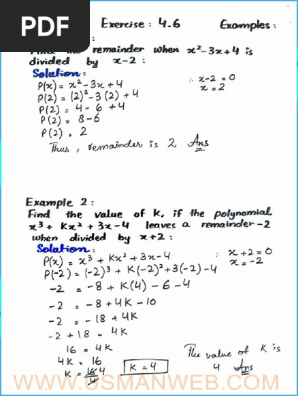 PDF
Exercise : 4.6 Examples :
Find the remainder when x²-3x+4 is
divided by x-2 :
Solution :
P(x) = x² - 3x + 4 ∴ x-2 = 0
P(2) = (2)² - 3(2) + 4 x = 2
P(2) = 4 - 6 + 4
P(2) = 8-6
P(2) = 2
Thus, remainder is 2 Ans
Example 2 :
Find the value of K, if the polynomial
x³ + Kx² + 3x - 4 leaves a remainder -2
when divided by x+2 :
Solution :
P(x) = x³ + Kx² + 3x - 4 ∴ x+2 = 0
P(-2) = (-2)³ + K(-2)² + 3(-2) - 4 x = -2
-2 = -8 + K(4) - 6 - 4
-2 = -8 + 4K - 10
-2 = -18 + 4K
-2 + 18 = 4K
16 = 4K
4K = 16
K = 16/4 K = 4
The value of K is
4 Ans
WWW.USMANWEB.COM